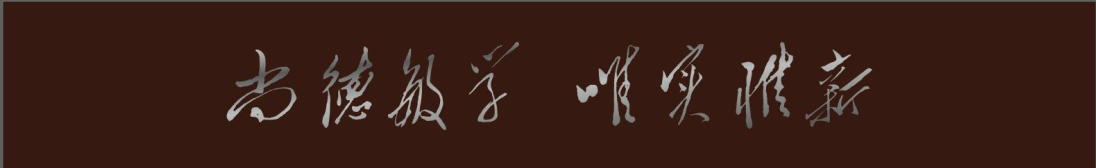 尚德敏学 唯实惟新